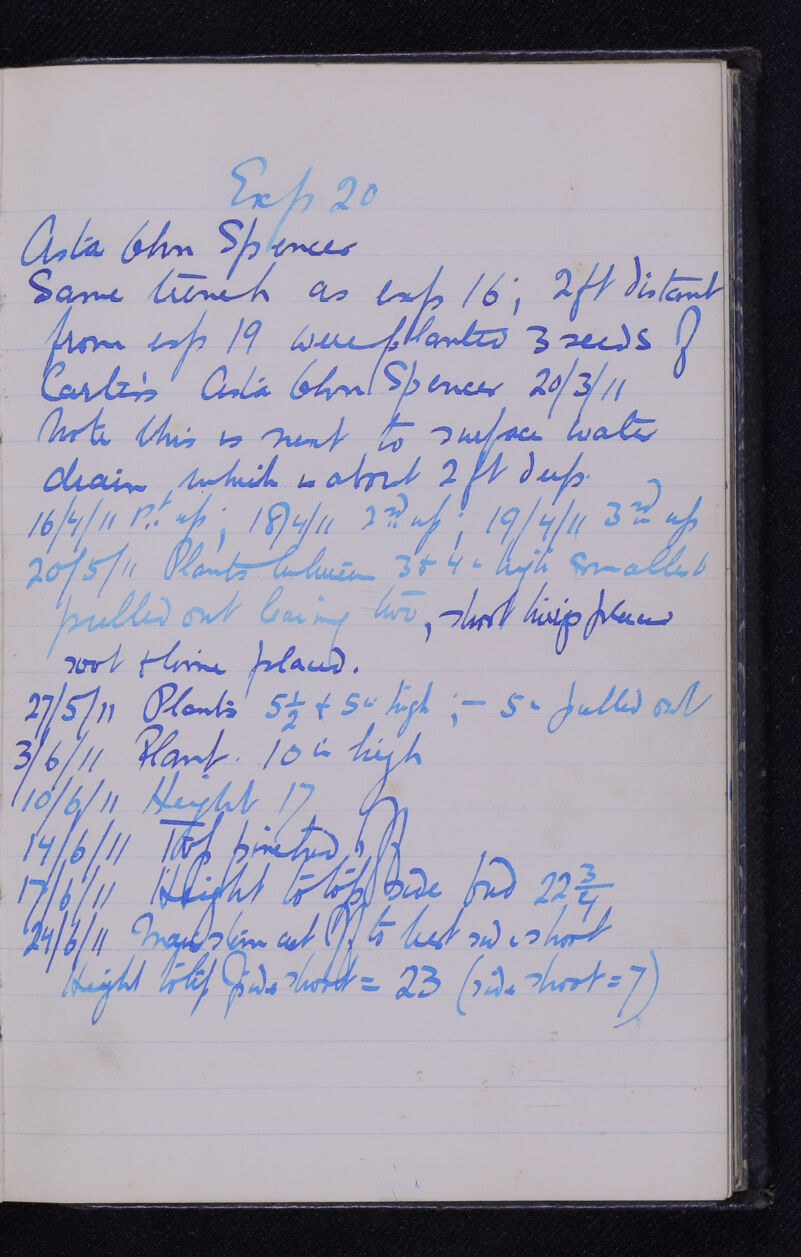 Exp 20
Asta Ohn Spencer
Same trench as exp 16; 2ft distant
from exp 19 were planted 3 seeds of
Carter's Asta Ohn Spencer 20/3/11
Note this is next to surface water
drain which is about 2 ft deep.
16/4/11 1st up; 18/4/11 2nd up; 19/4/11 3rd up
20/5/11 Plants between 3 & 4" high smallest
pulled out leaving two, short
soot & lime placed.
27/5/11 Plants 5½ & 5" high ;- 5" pulled out
3/6/11 Plant 10 in high
10/6/11 Height 17
14/6/11 Top pinched off
17/6/11 Height to top side bud 22 3/4
24/6/11 Main stem cut off to best side shoot
Height to tip side shoot = 23 (side shoot = 7)